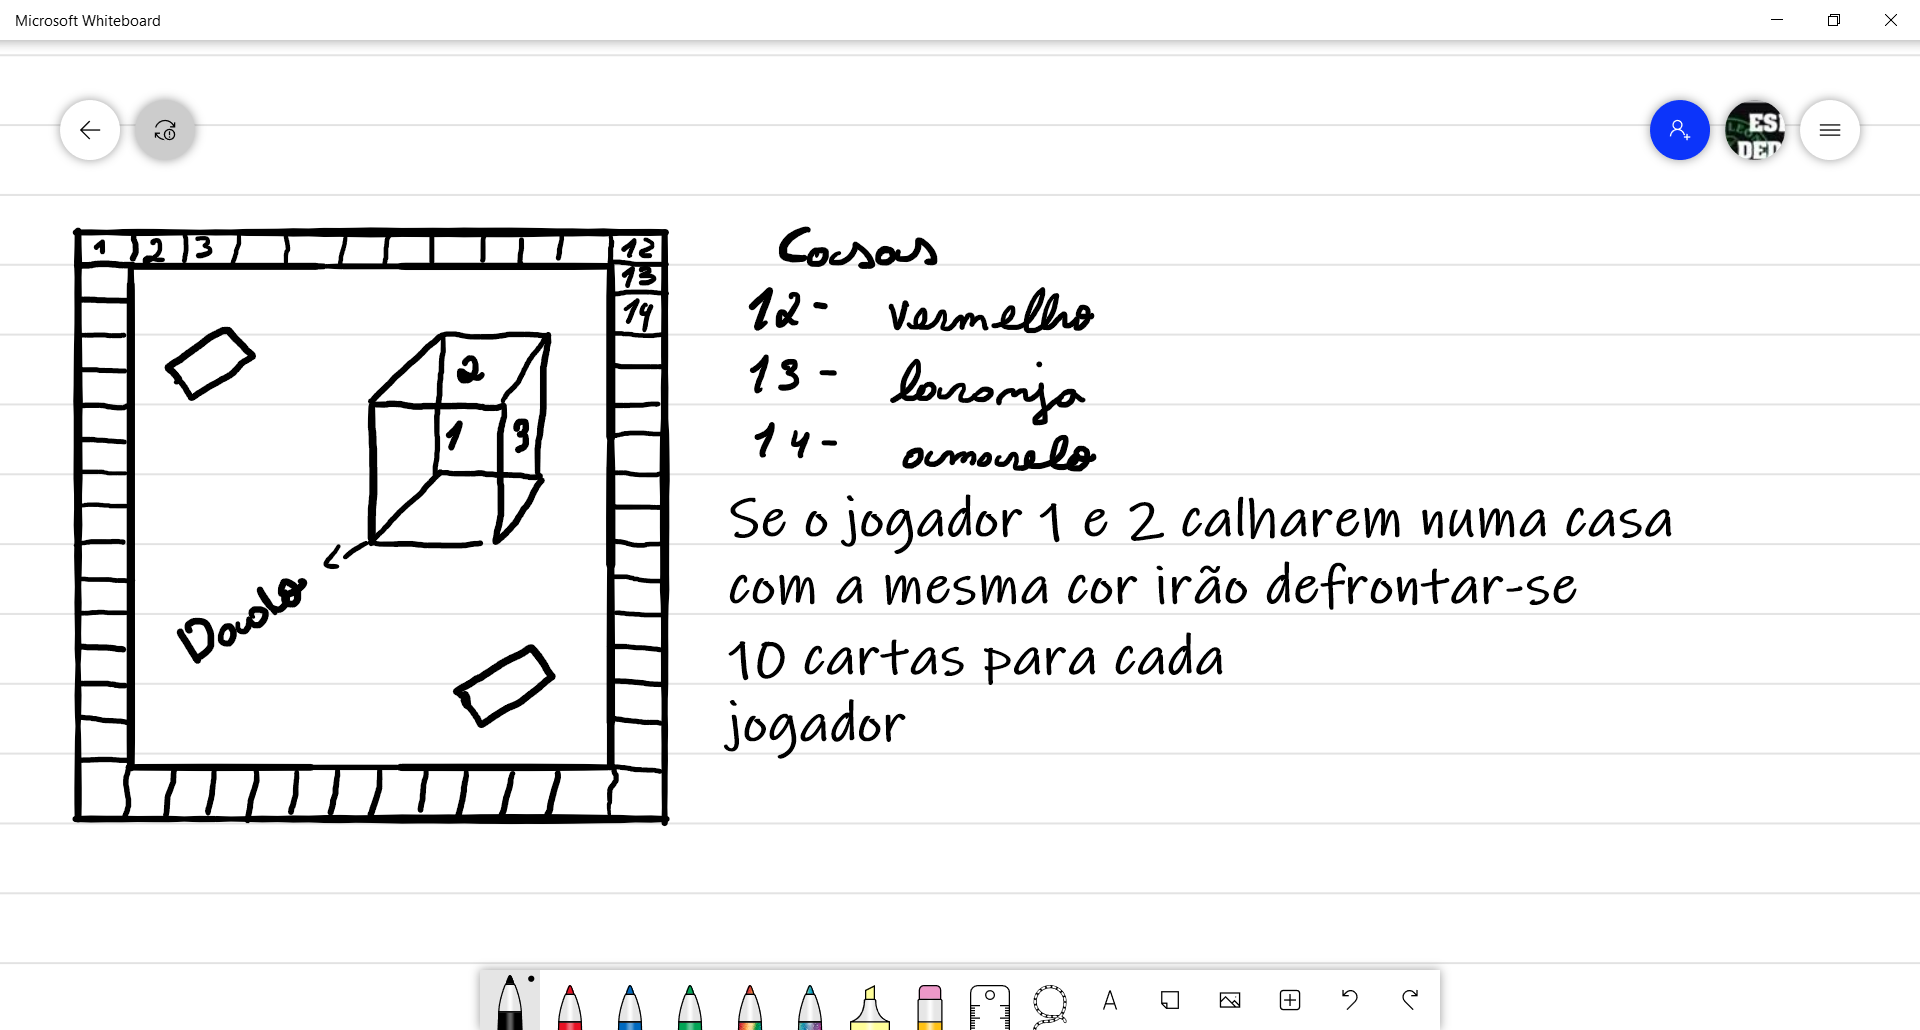 Microsoft Whiteboard
ESI
DED
1 2 3 12
13
14
2
1 3
Dado
Casas
12- vermelho
13- laranja
14- amarelo
Se o jogador 1 e 2 calharem numa casa
com a mesma cor irão defrontar-se
10 cartas para cada
jogador